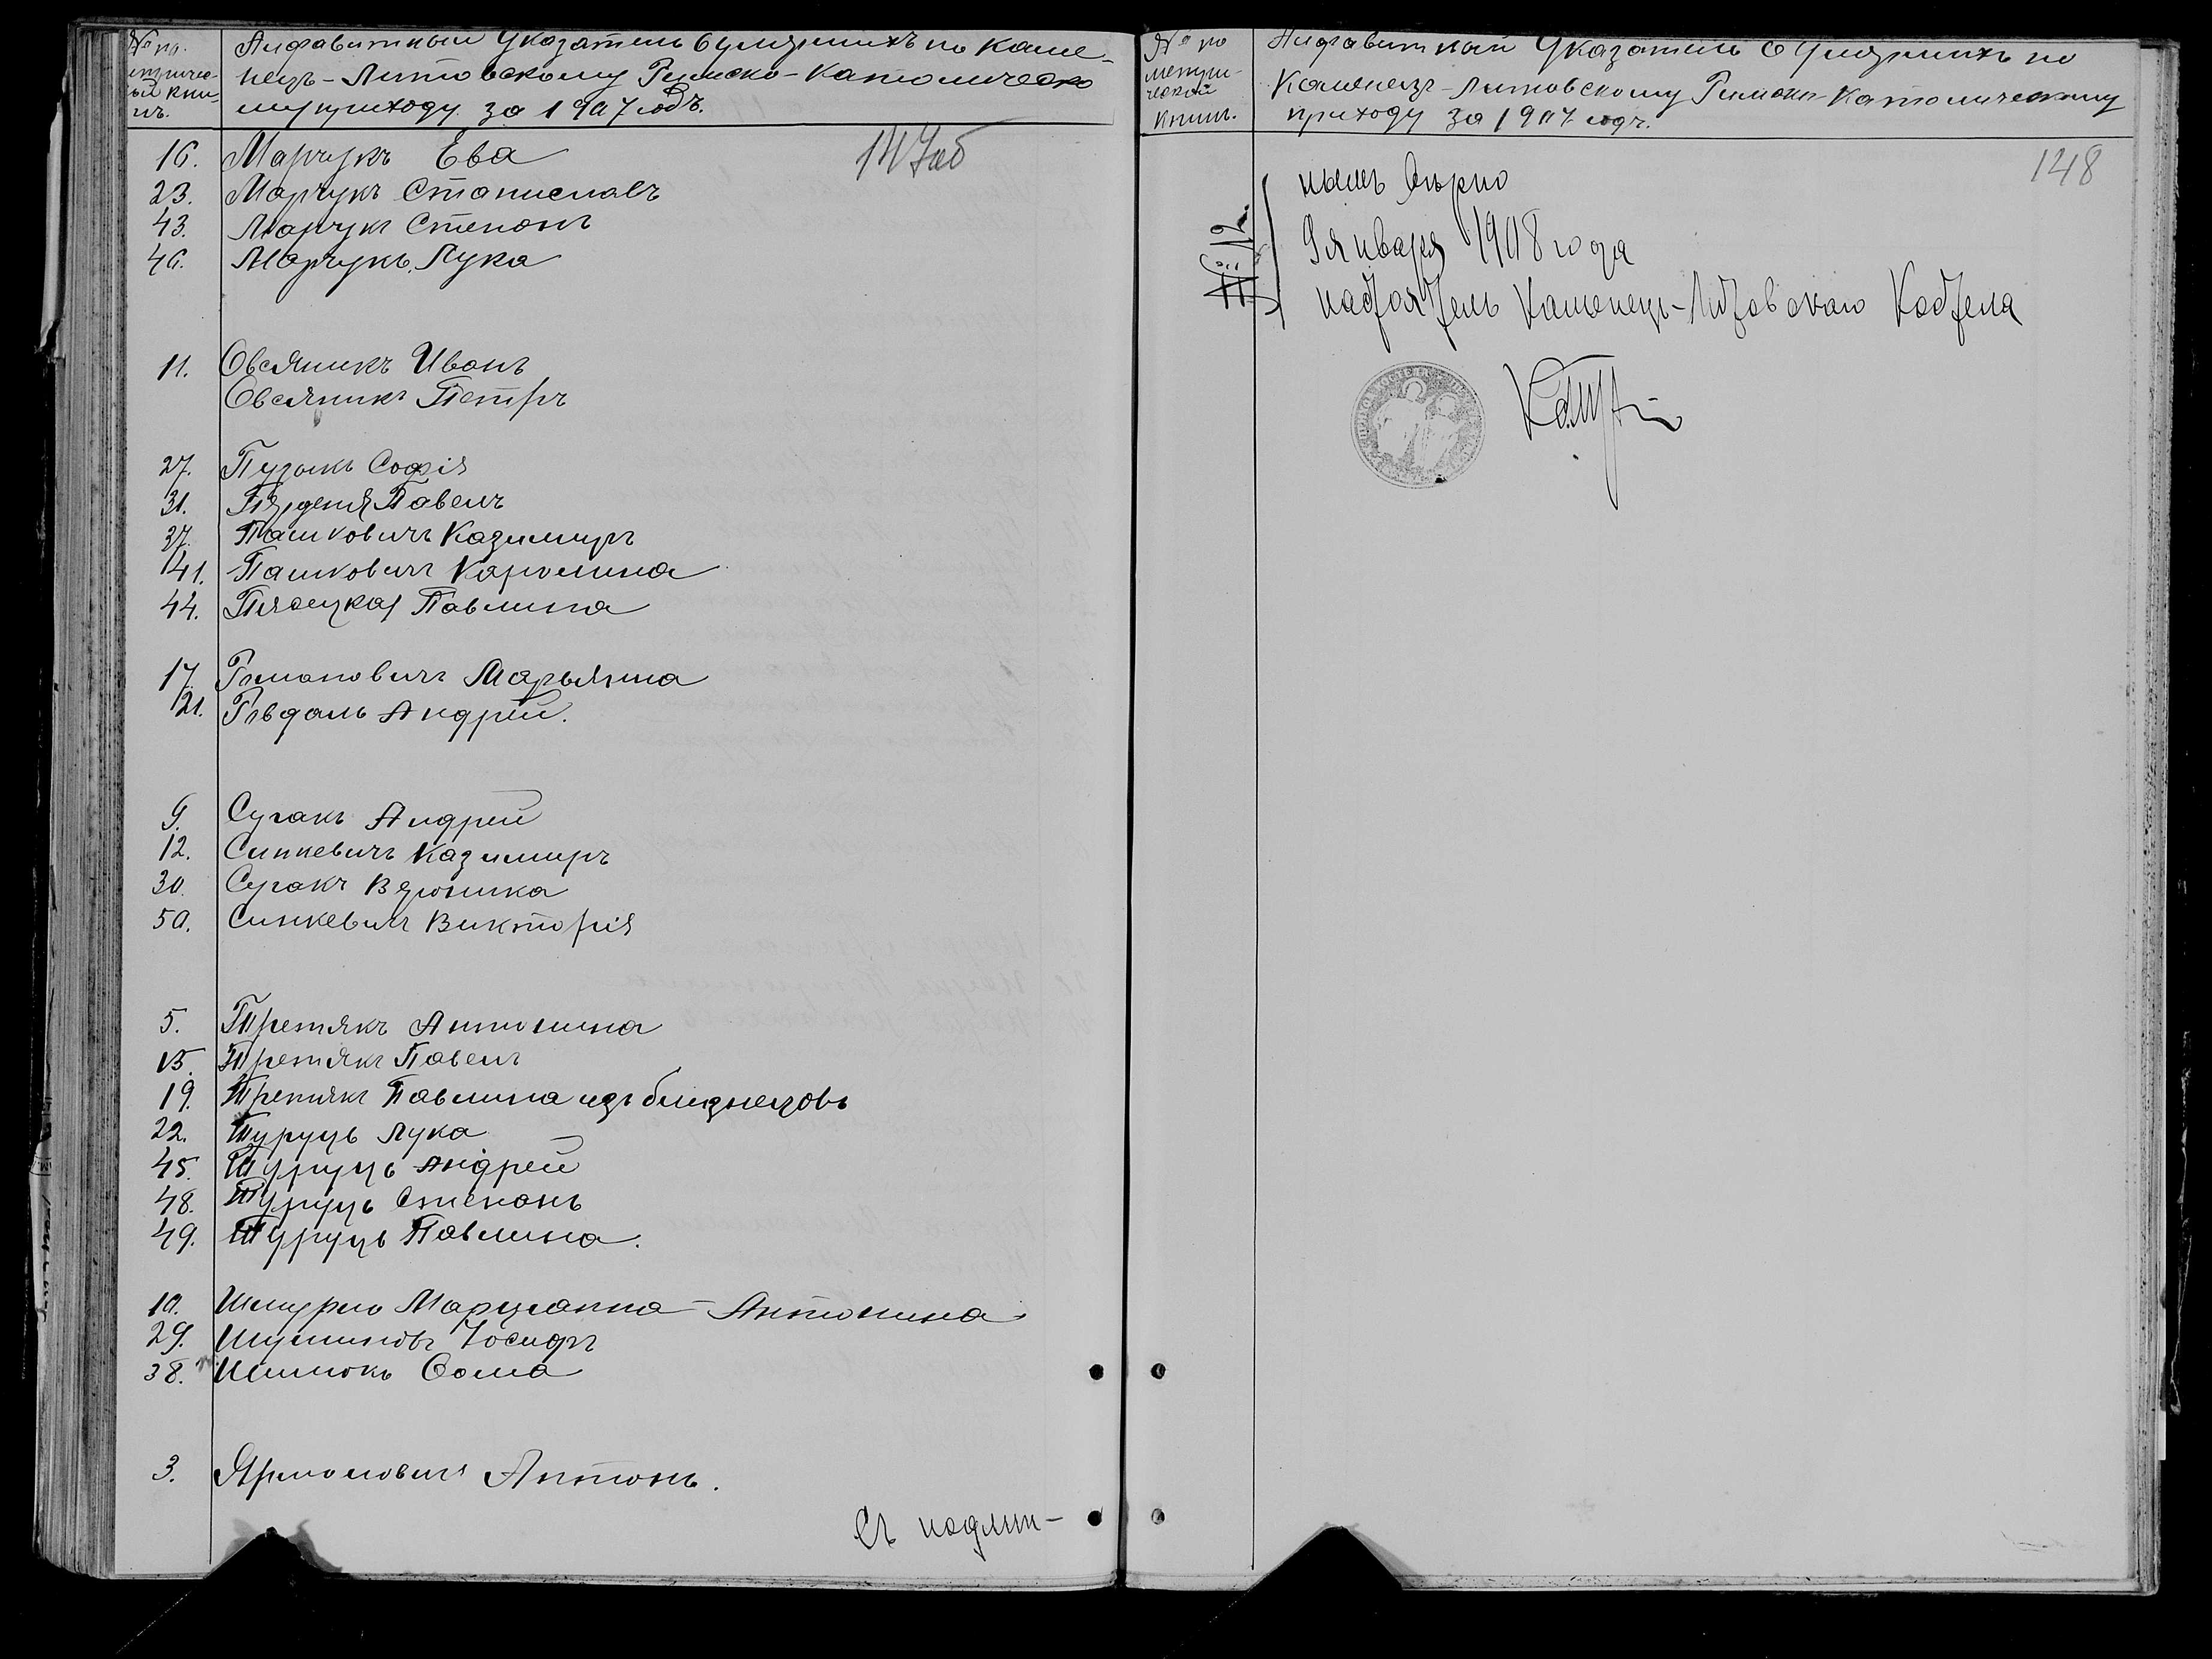 № по
метричес-
кой кни-
гѣ.
Алфавитный Указатель о умершихъ по Каме-
нецъ-Литовскому Римско-Католическо
му приходу за 1907 годъ.
147об
16. Марчукъ Ева
23. Марчукъ Станиславъ
43. Марчукъ Степанъ
46. Марчукъ Лука
11. Овсяникъ Иванъ
Овсяникъ Петръ
27. Пузыкъ Софія
31. Павелъ
37. Пашковичъ Казимиръ
41. Пашковичъ Каролина
44. Пясецкая Павлина
17. Романовичъ Марьянна
21. Рѣвдаль Андрей.
9. Сугакъ Андрей
12. Синкевичъ Казимиръ
30. Сугакъ Вероника
50. Синкевичъ Викторія
5. Третякъ Антонина
15. Третякъ Павелъ
19. Третякъ Павлина изъ близнецовъ
22. Туруць Лука
45. Туруць Андрей
48. Туруць Степанъ
49. Туруць Павлина.
10. Шмурло Марцианна-Антонина
29. Іосифъ
38. Шимюкъ Ѳома
3. Ярмоловичъ Антонъ.
Съ подлин-
№ по
метри-
ческой
книг.
Алфавитный Указатель о Умершихъ по
Каменецъ-Литовскому Римско-Католическому
приходу за 1907 годъ.
148
нымъ вѣрно
9 января 1908 года
№ 12
настоятель Каменецъ-Литовскаго Костела